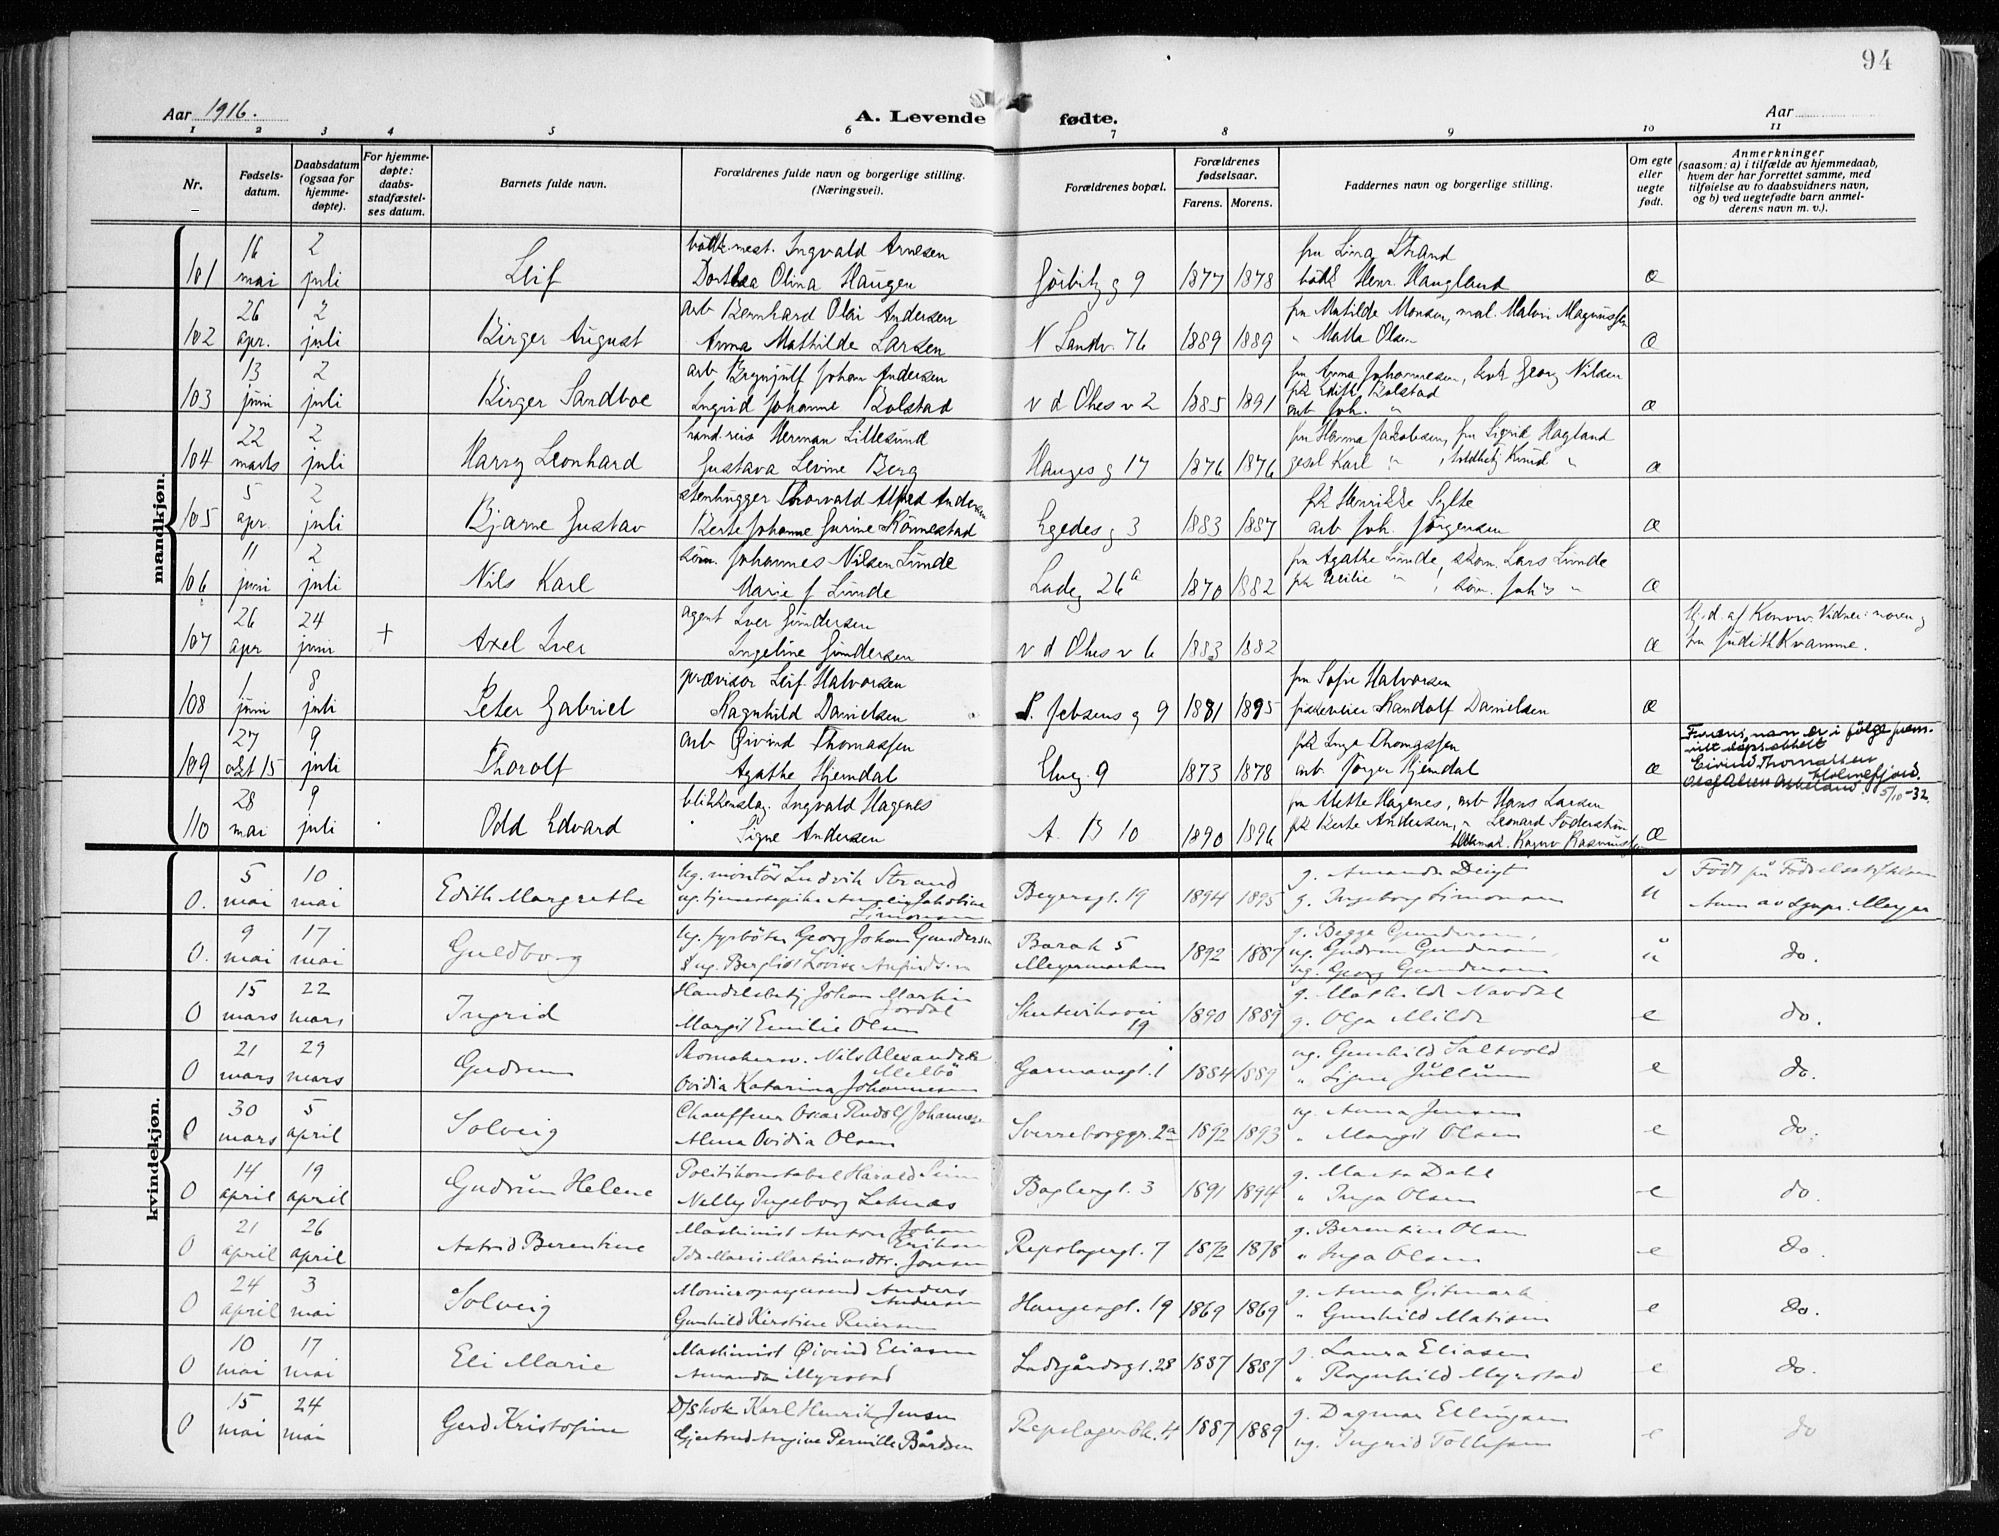 94
Aar 1916.
A. Levende fødte.
Aar
1 2 3 4 5 6 7 8 9 10 11
Nr.
Fødsels-
datum.
Daabsdatum
(ogsaa for
hjemme-
døpte).
For hjemme-
døpte:
daabs-
stadfæstel-
ses datum.
Barnets fulde navn.
Forældrenes fulde navn og borgerlige stilling.
(Næringsvei).
Forældrenes bopæl.
Forældrenes
fødselsaar.
Farens. Morens.
Faddernes navn og borgerlige stilling.
Om egte
eller
uegte
født.
Anmerkninger
(saasom: a) i tilfælde av hjemmedaab,
hvem der har forrettet samme, med
tilføielse av to daabsvidners navn,
og b) ved uegtefødte barn anmel-
derens navn m. v.).
mandkjøn.
16 2 Ingvald Arnesen fru Lina Strand
101 mai juli Leif Dorthea Olina Haugen g 9 1877 1878 Henr. Haugland æ
26 2 arb Bernhard Olai Andersen fru Matilde Monsen, Malvi Magnussen
102 apr. juli Birger August Anna Mathilde Larsen N Sandv. 76 1889 1889 " Matta Olsen æ
13 2 arb Brynjulf Johan Andersen fru Anna Johannesen, Georg Nilsen
103 juni juli Birger Sandboe Ingrid Johanne Bolstad v d Ohes v 2 1885 1891 frk Edith Bolstad
arb Joh. " æ
22 2 Herman Lillesund fru Hanna Jakobsen, fru Sigrid Hagland
104 marts juli Harry Leonhard Gustava Levine Berg Hauges g 17 1876 1876 gesel Karl " , Knud " æ
5 2 stenhugger Thorvald Alfred Andersen frk Henrikke Sylte
105 apr. juli Bjarne Gustav Berte Johanne Gurine Rönnestad Egedes g 3 1883 1887 arb Joh. Jörgensen æ
11 2 söm. Johannes Nilsen Lunde fru Agathe Lunde, skom. Lars Lunde
106 juni juli Nils Karl Marie f Lunde Ladeg 26a 1870 1882 frk Cecilie " , söm. Joh's " æ
26 24 agent Iver Gundersen Hj. d. af Vidner: moren og
107 apr juni + Axel Iver Ingeline Gundersen v d Ohes v 6 1883 1882 æ fru Judith Kvamme.
1 8 provisor Leif Halvorsen fru Sofie Halvorsen
108 juni juli Peter Gabriel Ragnhild Danielsen P. Jebsens g 9 1881 1895 Randolf Danielsen æ
27 9 arb Øivind Thomassen frk Inga Thomassen
109 okt 15 juli Thorolf Agathe Hjemdal Elveg. 9 1873 1878 arb. Jørger Hjemdal æ
Farens navn er i følge frem-
vist
Eivind Thomassen
5/10-32.
28 9 blikkenslag. Ingvald Hagenes fru Mette Hagenes, arb Hans Larsen
110 mai juli Odd Edvard Signe Andersen A. B 10 1890 1896 frk Berte Andersen, " Leonard Söderström
Ragnv Rasmussen æ
kvindekjøn.
5 10 ug. montör Ludvik Strand g. Amanda Deigt Født på Fødselsstiftelsen
0. mai mai Edith Margrethe ug. tjenestepike Jakobine
Simonsen Beyersgt. 19 1894 1895 g. Ingeborg Simonsen u Anm av Meyer
9 17 ug. fyrböter Georg Johan Gundersen Barak 5 g. Begga Gundersen,
0. mai mai Guldborg & ug. Bergliot Lovise Meyermarken 1892 1887 ug. Gudrun Gundersen,
ug. Georg Gundersen u do.
15 22 Handelsbetj Johan Martin
Jordal Skuteviksvei g. Mathilde Navdal
0 mars mars Ingrid Margit Emilie Olsen 19 1890 1889 g. Olga Milde e do.
21 29 Nils Alexander
Melbö ug. Gunhild Saltvold
0 mars mars Gudrun Ovidia Katarina Johannesen Garmansgt. 1 1884 1889 " Signe Jullum e do.
30 5 Chauffeur Oscar Rudolf Johannesen ug. Anna Jensen
0 mars april Solveig Alma Ovidia Olsen Sverreborggt. 2a 1892 1893 " Margit Olsen e do.
14 19 Politikonstabel Harald Seim g. Marta Dahl
0 april april Gudrun Helene Nelly Ingeborg Leknes Baglergt. 3 1891 1894 " Inga Olsen e do.
21 26 Maskinist Anton Johan
Eriksen g. Berentine Olsen
0 april april Astrid Berentine Ida Marie Martinusdtr. Jensen Repslagergt. 7 1872 1878 " Inga Olsen e do.
24 3 Anders
Andersen g. Anna Gitmark
0 april mai Solveig Gunhild Kirstine Reiersen Haugesgt. 19 1869 1869 " Gunhild Matisen e do.
10 17 Maskinist Øivind Eliasen g. Laura Eliasen
0 mai mai Eli Marie Amanda Myrstad Ladegårdsgt. 28 1887 1887 " Ragnhild Myrstad e do.
15 24 D/skok Karl Henrik Jensen g. Dagmar Ellingsen
0 mai mai Gerd Kristofine Gjertrud Angine Pernille Bårdsen Repslagerbk. 4 1887 1889 ug. Ingrid Tollefsen e do